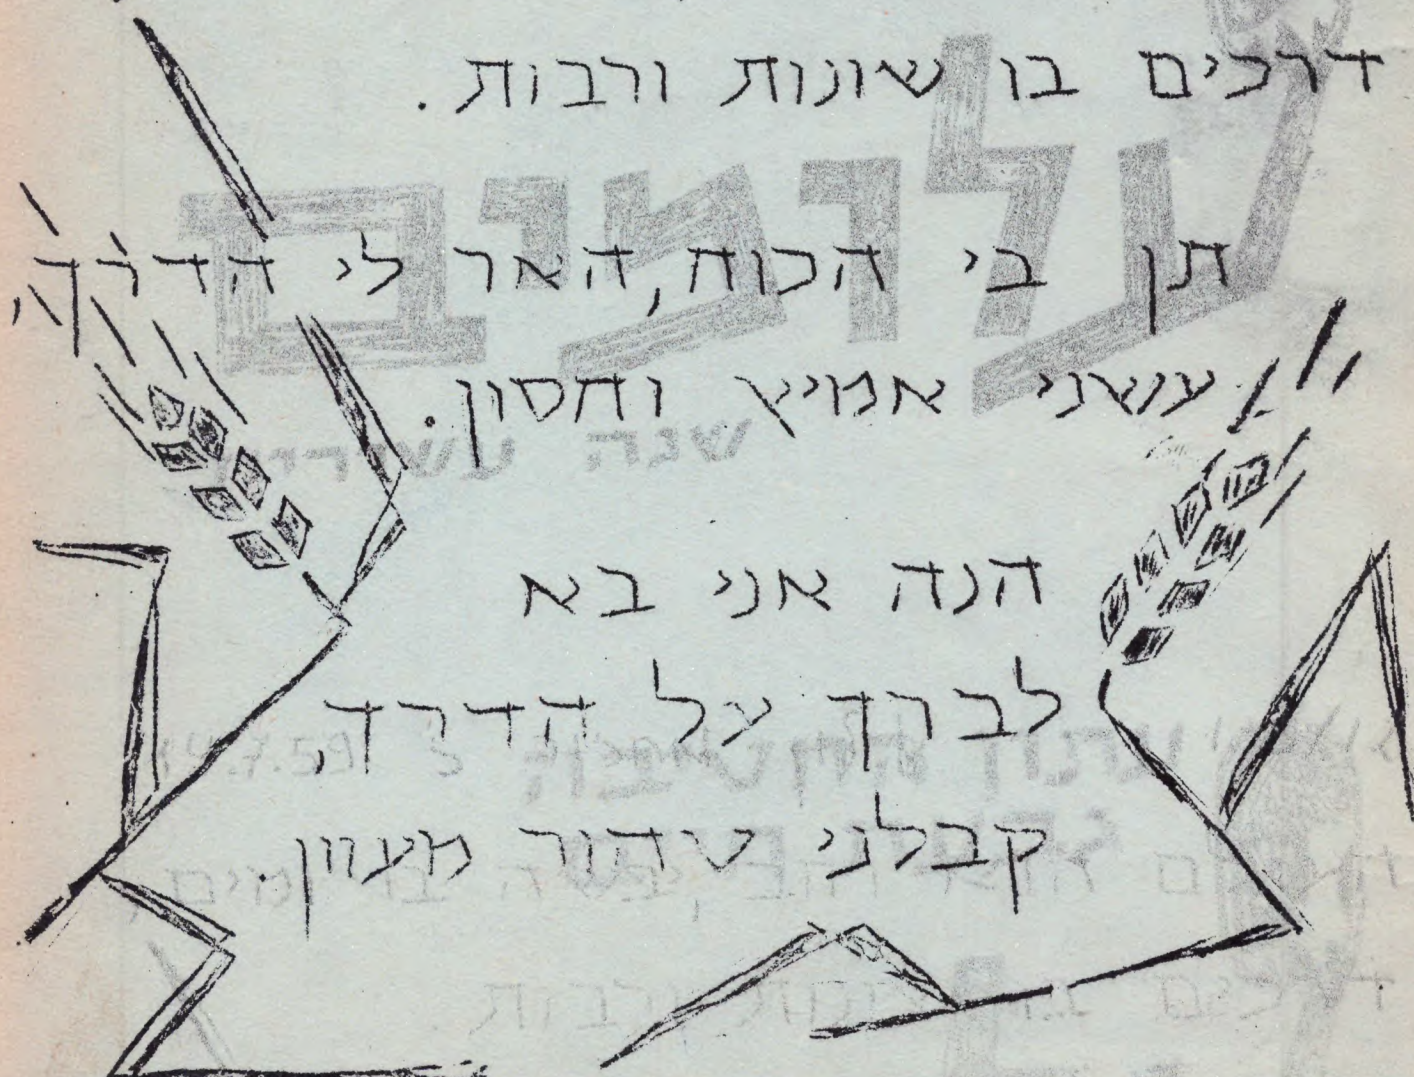 דרכים בו שונות ורבות.
עלומים
תן בי הכוח, האר לי הדרך,
עשני אמיץ וחסון.
שנה
הנה אני בא
לברך על הדרך,
14.7.59
קבלני טהור מעוון.